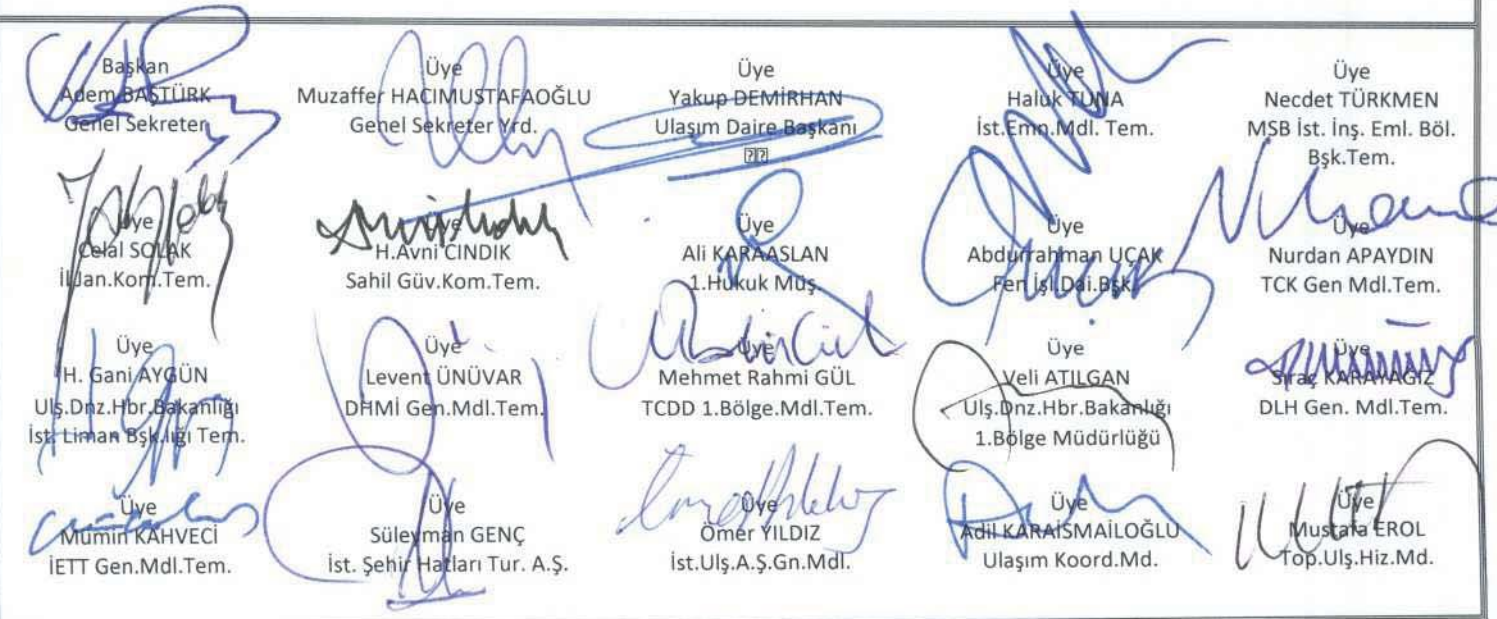 Başkan
Adem BAŞTÜRK
Genel Sekreter
Üye
Muzaffer HACIMUSTAFAOĞLU
Genel Sekreter Yrd.
Üye
Yakup DEMİRHAN
Ulaşım Daire Başkanı
Üye
Haluk TUNA
İst.Emn.Mdl. Tem.
Üye
Necdet TÜRKMEN
MSB İst. İnş. Eml. Böl.
Bşk.Tem.
Üye
Celal SOLAK
İl Jan.Kom.Tem.
Üye
H.Avni CINDIK
Sahil Güv.Kom.Tem.
Üye
Ali KARAASLAN
1.Hukuk Müş.
Üye
Abdurrahman UÇAK
Fen İşl.Dai.Bşk.
Üye
Nurdan APAYDIN
TCK Gen Mdl.Tem.
Üye
H. Gani AYGÜN
Ulş.Dnz.Hbr.Bakanlığı
İst. Liman Bşk.lığı Tem.
Üye
Levent ÜNÜVAR
DHMİ Gen.Mdl.Tem.
Üye
Mehmet Rahmi GÜL
TCDD 1.Bölge.Mdl.Tem.
Üye
Veli ATILGAN
Ulş.Dnz.Hbr.Bakanlığı
1.Bölge Müdürlüğü
Üye
Siraç KARAYAĞIZ
DLH Gen. Mdl.Tem.
Üye
Mümin KAHVECİ
İETT Gen.Mdl.Tem.
Üye
Süleyman GENÇ
İst. Şehir Hatları Tur. A.Ş.
Üye
Ömer YILDIZ
İst.Ulş.A.Ş.Gn.Mdl.
Üye
Adil KARAİSMAİLOĞLU
Ulaşım Koord.Md.
Üye
Mustafa EROL
Top.Ulş.Hiz.Md.